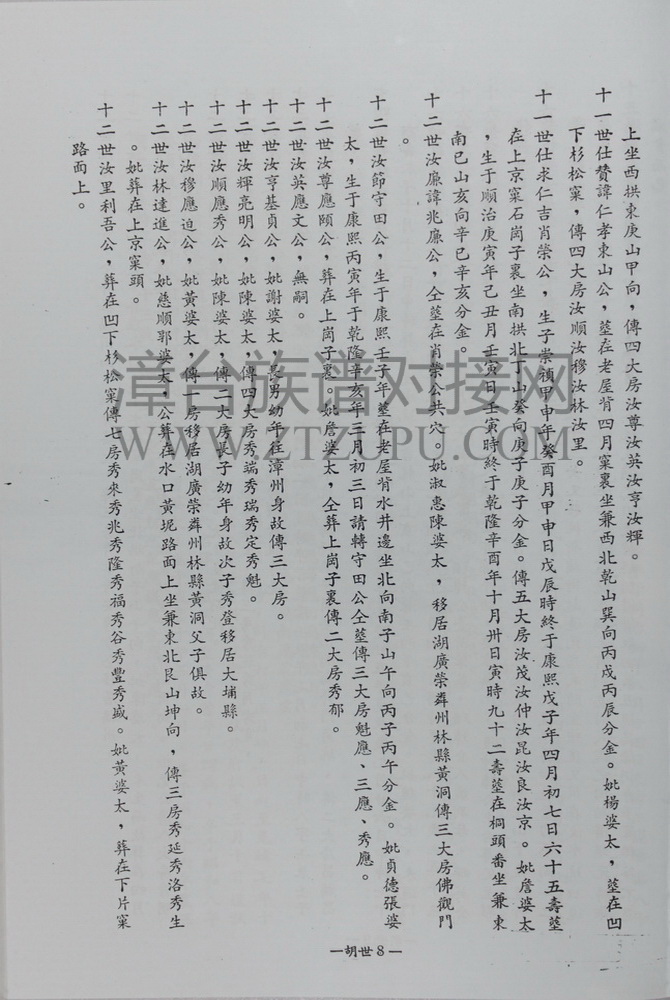 上坐西拱東庚山甲向，傳四大房汝尊汝英汝亨汝輝。
十一世仕贊諱仁孝東山公，塟在老屋背四月窠裏坐兼西北乾山巽向丙戌丙辰分金。妣楊婆太，塟在凹
下杉松窠，傳四大房汝順汝穆汝林汝里。
十一世仕求仁吉肖榮公，生子崇禎甲申年癸酉月甲申日戊辰時終于康熙戊子年四月初七日六十五壽塟
在上京窠石崗子裏坐南拱北丁山癸向庚子庚子分金。傳五大房汝茂汝仲汝昆汝良汝京。妣詹婆太
，生于順治庚寅年己丑月壬寅日壬寅時終于乾隆辛酉年十月卅日寅時九十二壽塟在桐頭番坐兼東
南巳山亥向辛巳辛亥分金。
十二世汝廉諱兆廉公，仝塟在肖榮公共穴。妣淑惠陳婆太，移居湖廣榮舜州林縣黃洞傳三大房佛觀門
。
十二世汝節守田公，生于康熙壬子年塟在老屋背水井邊坐北向南子山午向丙子丙午分金。妣貞德張婆
太，生于康熙丙寅年于乾隆辛亥年三月初三日請轉守田公仝塟傳三大房魁應、三應、秀應。
十二世汝尊應頤公，葬在上崗子裏。妣詹婆太，仝葬上崗子裏傳二大房秀郁。
十二世汝英應文公，無嗣。
十二世汝亨基貞公，妣謝婆太，長男幼年往漳州身故傳三大房。
十二世汝輝亮明公，妣陳婆太，傳四大房秀端秀瑞秀定秀魁。
十二世汝順應秀公，妣陳婆太，傳二大房長子幼年身故次子秀登移居大埔縣。
十二世汝穆應迫公，妣黃婆太，傳一房移居湖廣榮舜州林縣黃洞父子俱故。
十二世汝林達進公，妣慈順郭婆太，公葬在水口黃坭路面上坐兼東北艮山坤向，傳三房秀延秀洛秀生
。妣葬在上京窠頭。
十二世汝里利吾公，葬在凹下杉松窠傳七房秀來秀兆秀隆秀福秀谷秀豐秀盛。妣黃婆太，葬在下片窠
路面上。
—胡世8—
漳台族谱对接网
WWW.ZTZUPU.COM